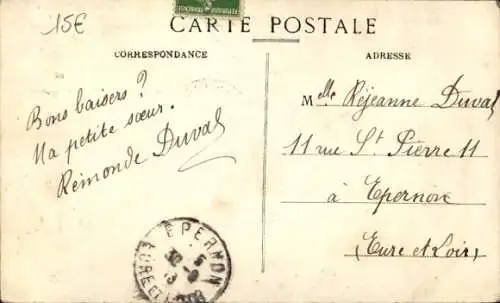 15€
CARTE POSTALE
CORRESPONDANCE
ADRESSE
Bons baisers?
Ma petite sœur.
Rémonde Duval
Melle Réjeanne Duval
11 rue St Pierre 11
à Epernon
(Eure et Loir)
EPERNON